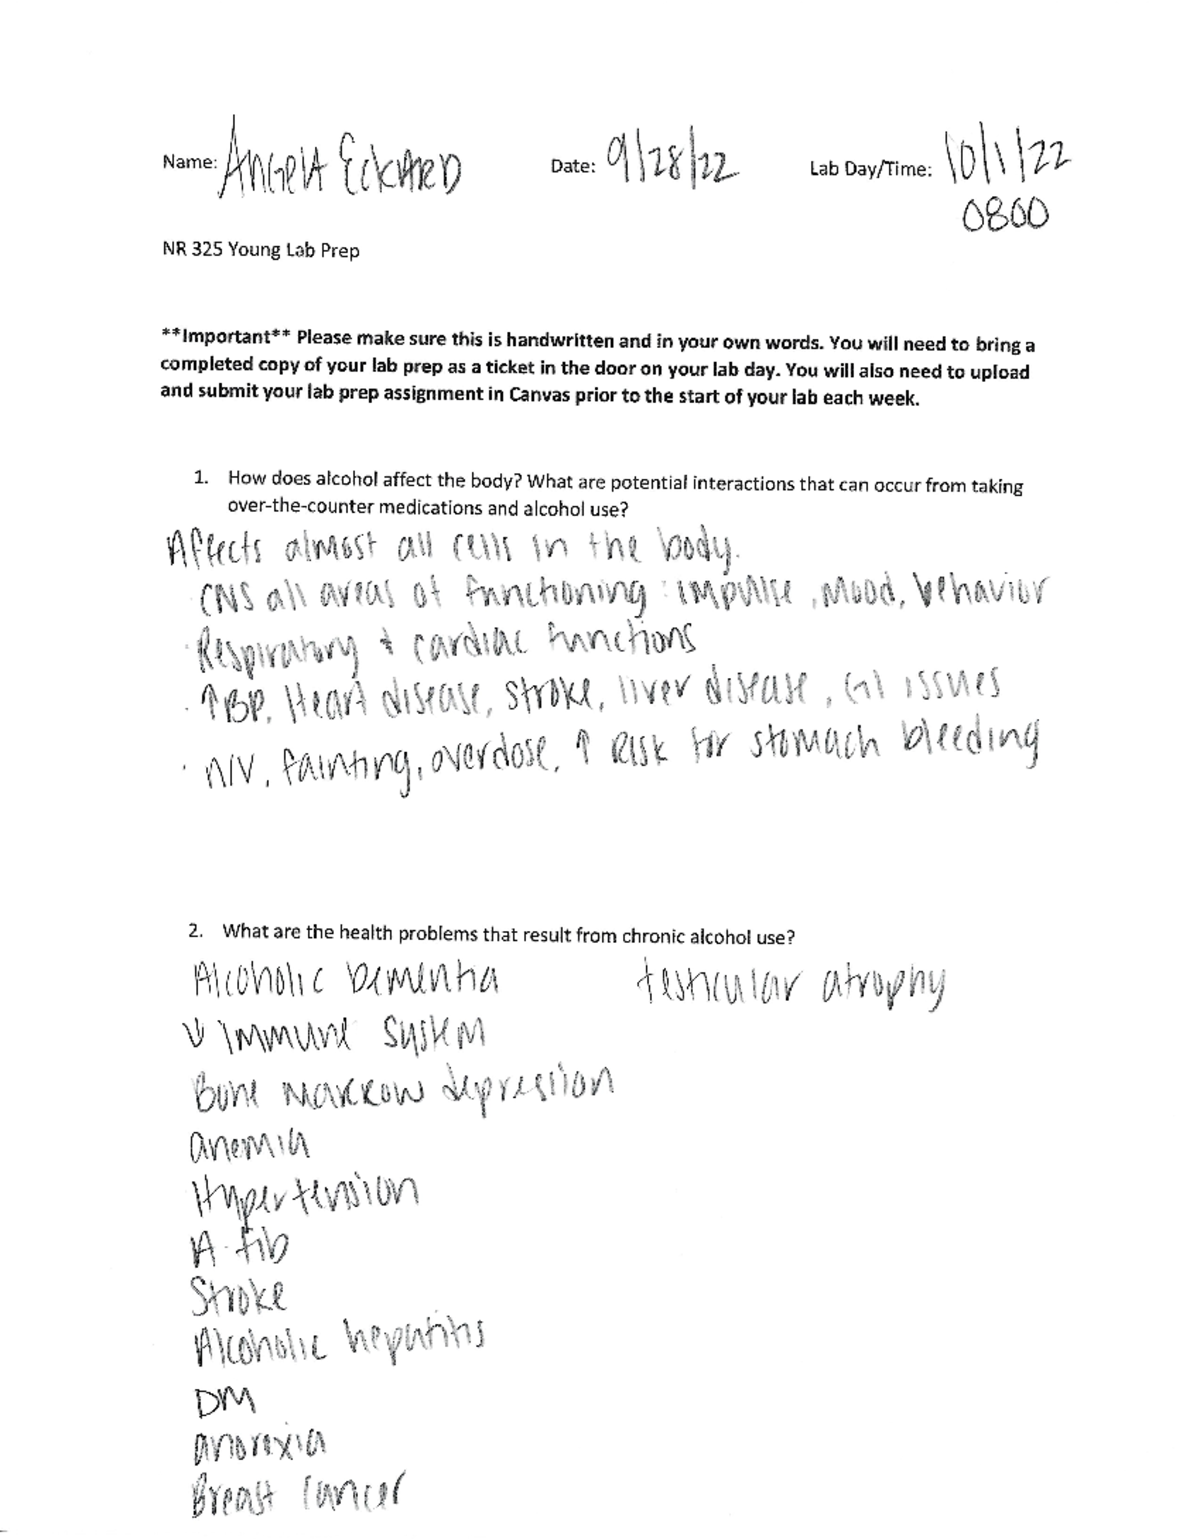 Name: Angela Eckard Date: 9/28/22 Lab Day/Time: 10/1/22
0800
NR 325 Young Lab Prep
**Important** Please make sure this is handwritten and in your own words. You will need to bring a
completed copy of your lab prep as a ticket in the door on your lab day. You will also need to upload
and submit your lab prep assignment in Canvas prior to the start of your lab each week.
1. How does alcohol affect the body? What are potential interactions that can occur from taking
over-the-counter medications and alcohol use?
Affects almost all cells in the body.
· CNS all areas of functioning : impulse, mood, behavior
· Respiratory + cardiac functions
· ↑BP, Heart disease, stroke, liver disease, GI issues
· N/V, fainting, overdose, ↑ Risk for stomach bleeding
2. What are the health problems that result from chronic alcohol use?
Alcoholic Dementia testicular atrophy
↓ immune system
Bone marrow depression
anemia
Hypertension
A-fib
Stroke
Alcoholic hepatitis
DM
anorexia
Breast cancer